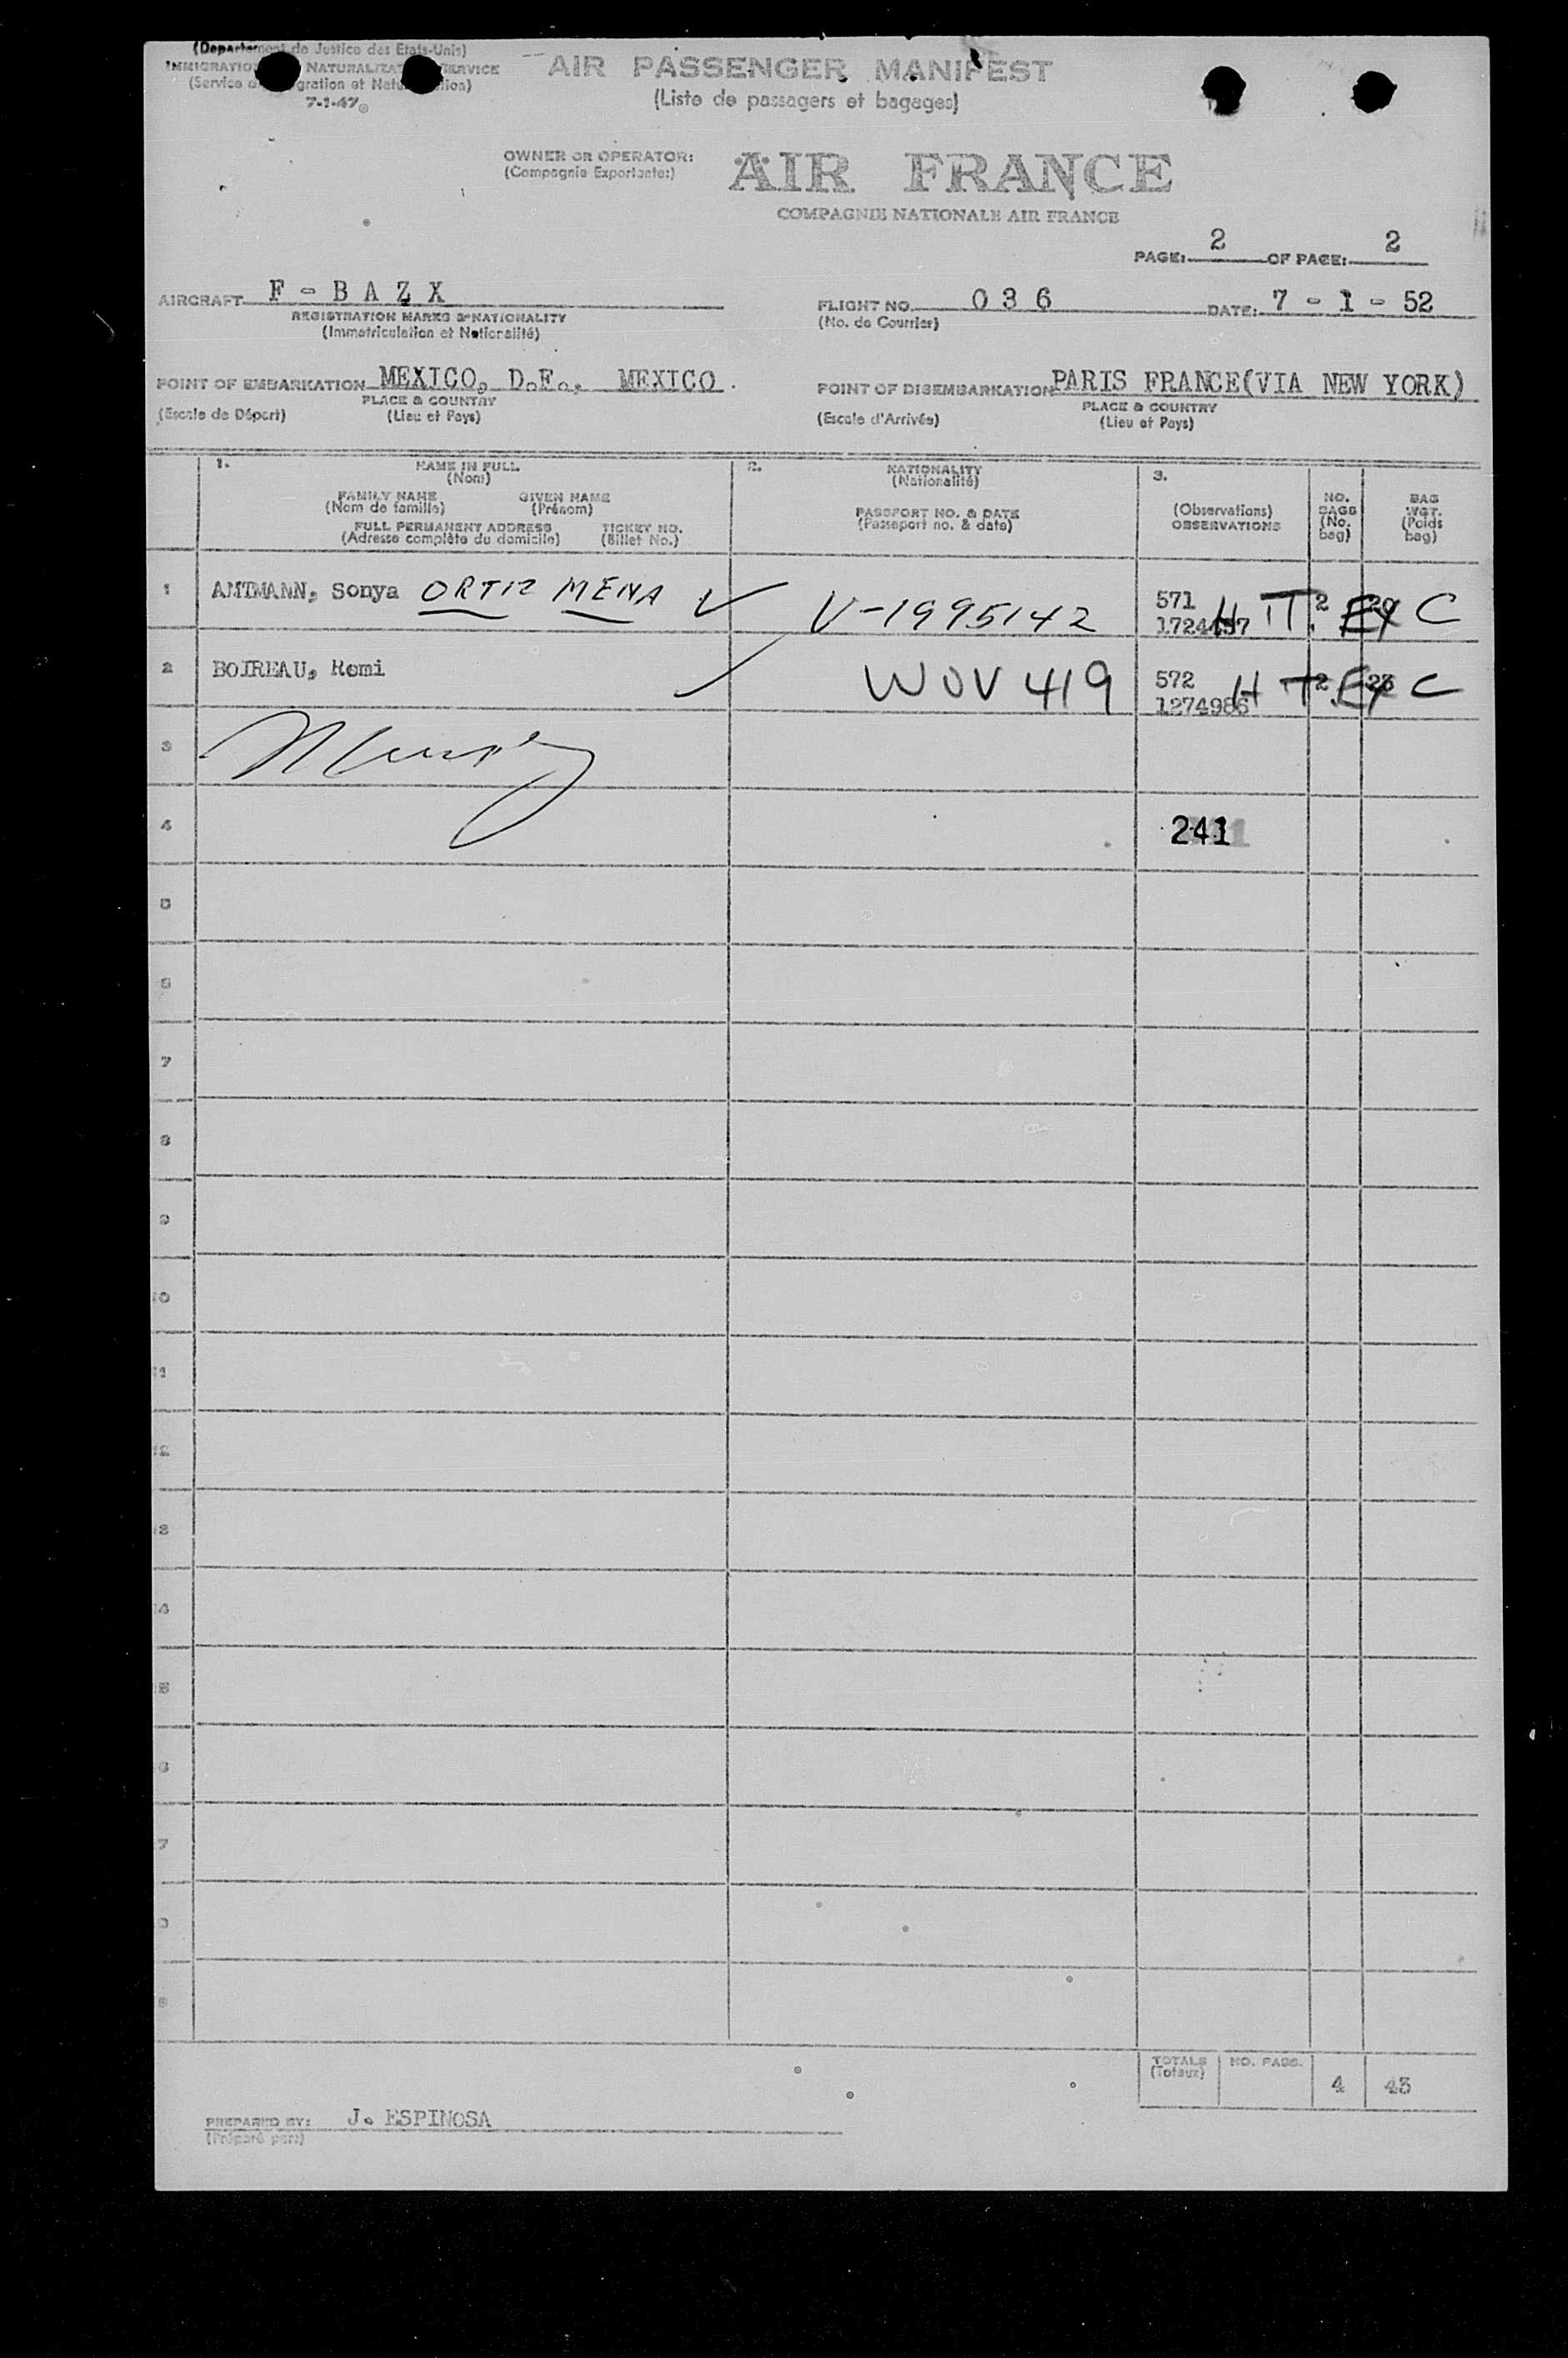 (Departement de Justice des Etats-Unis)
IMMIGRATION NATURALIZATION SERVICE
(Service gration et Natu tion)
7-1-47
AIR PASSENGER MANIFEST
(Liste de passagers et bagages)
OWNER OR OPERATOR:
(Compagnie Exportante:)
AIR FRANCE
COMPAGNIE NATIONALE AIR FRANCE
PAGE: 2 OF PAGE: 2
AIRCRAFT F - B A Z X
REGISTRATION MARKS & NATIONALITY
(Immatriculation et Nationalité)
FLIGHT NO. 0 3 6 DATE: 7 - 1 - 52
(No. de Courrier)
POINT OF EMBARKATION MEXICO, D.F., MEXICO.
PLACE & COUNTRY
(Escale de Départ) (Lieu et Pays)
POINT OF DISEMBARKATION PARIS FRANCE(VIA NEW YORK)
PLACE & COUNTRY
(Escale d'Arrivée) (Lieu et Pays)
1. NAME IN FULL
(Nom)
FAMILY NAME GIVEN NAME
(Nom de famille) (Prénom)
FULL PERMANENT ADDRESS TICKET NO.
(Adresse complète du domicile) (Billet No.)
2. NATIONALITY
(Nationalité)
PASSPORT NO. & DATE
(Passeport no. & date)
3.
(Observations)
OBSERVATIONS
NO.
BAGS
(No.
bag)
BAG
WGT.
(Poids
bag)
1 AMTMANN, Sonya ORTIZ MENA V-1995142 571 H T. 2 Ex 20 C
1724437
2 BOIREAU, Remi WOV 419 572 H T. 2 Ex 23 C
1274986
3
4 241
5
6
7
8
9
10
11
12
13
14
15
6
7
TOTALS NO. PASS. 4 43
(Totaux)
PREPARED BY: J. ESPINOSA
(Préparé par:)